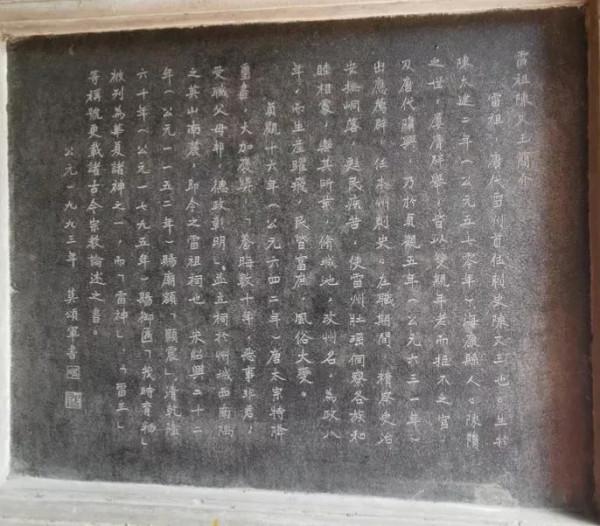 雷祖陳文玉簡介
雷祖，唐代雷州首任刺史陳文玉也。生於
陳太建二年（公元五七零年）海康縣人。陳隋
之世，屢膺辟舉，皆以雙親年老而拒不之官，
及唐代隋興，乃於貞觀五年（公元六三一年）
出應薦辟，任本州刺史。在職期間，精察吏治
安撫峒落，懇民疾苦，使雷州壯瑶侗寮各族和
睦相處，樂其所業，脩城池，改州名，為政八
年，而生產躍飛，民皆富庶，風俗大變。
貞觀十六年（公元六四二年）唐太宗特降
璽書，大加褒獎，「養晦數十年，
受職父母邦，德政彰明」並立祠於州城西南隅
之英山南麓，即今之雷祖祠也。宋紹興二十二
年（公元一一五二年）賜廟額「顯震」，清乾隆
六十年（公元一七九五年）賜御匾「茂時育物」
被列為華夏諸神之一，而「雷神」、「雷王」
等稱號更載諸古今宗教論述之書。
公元一九九三年 莫頌軍書